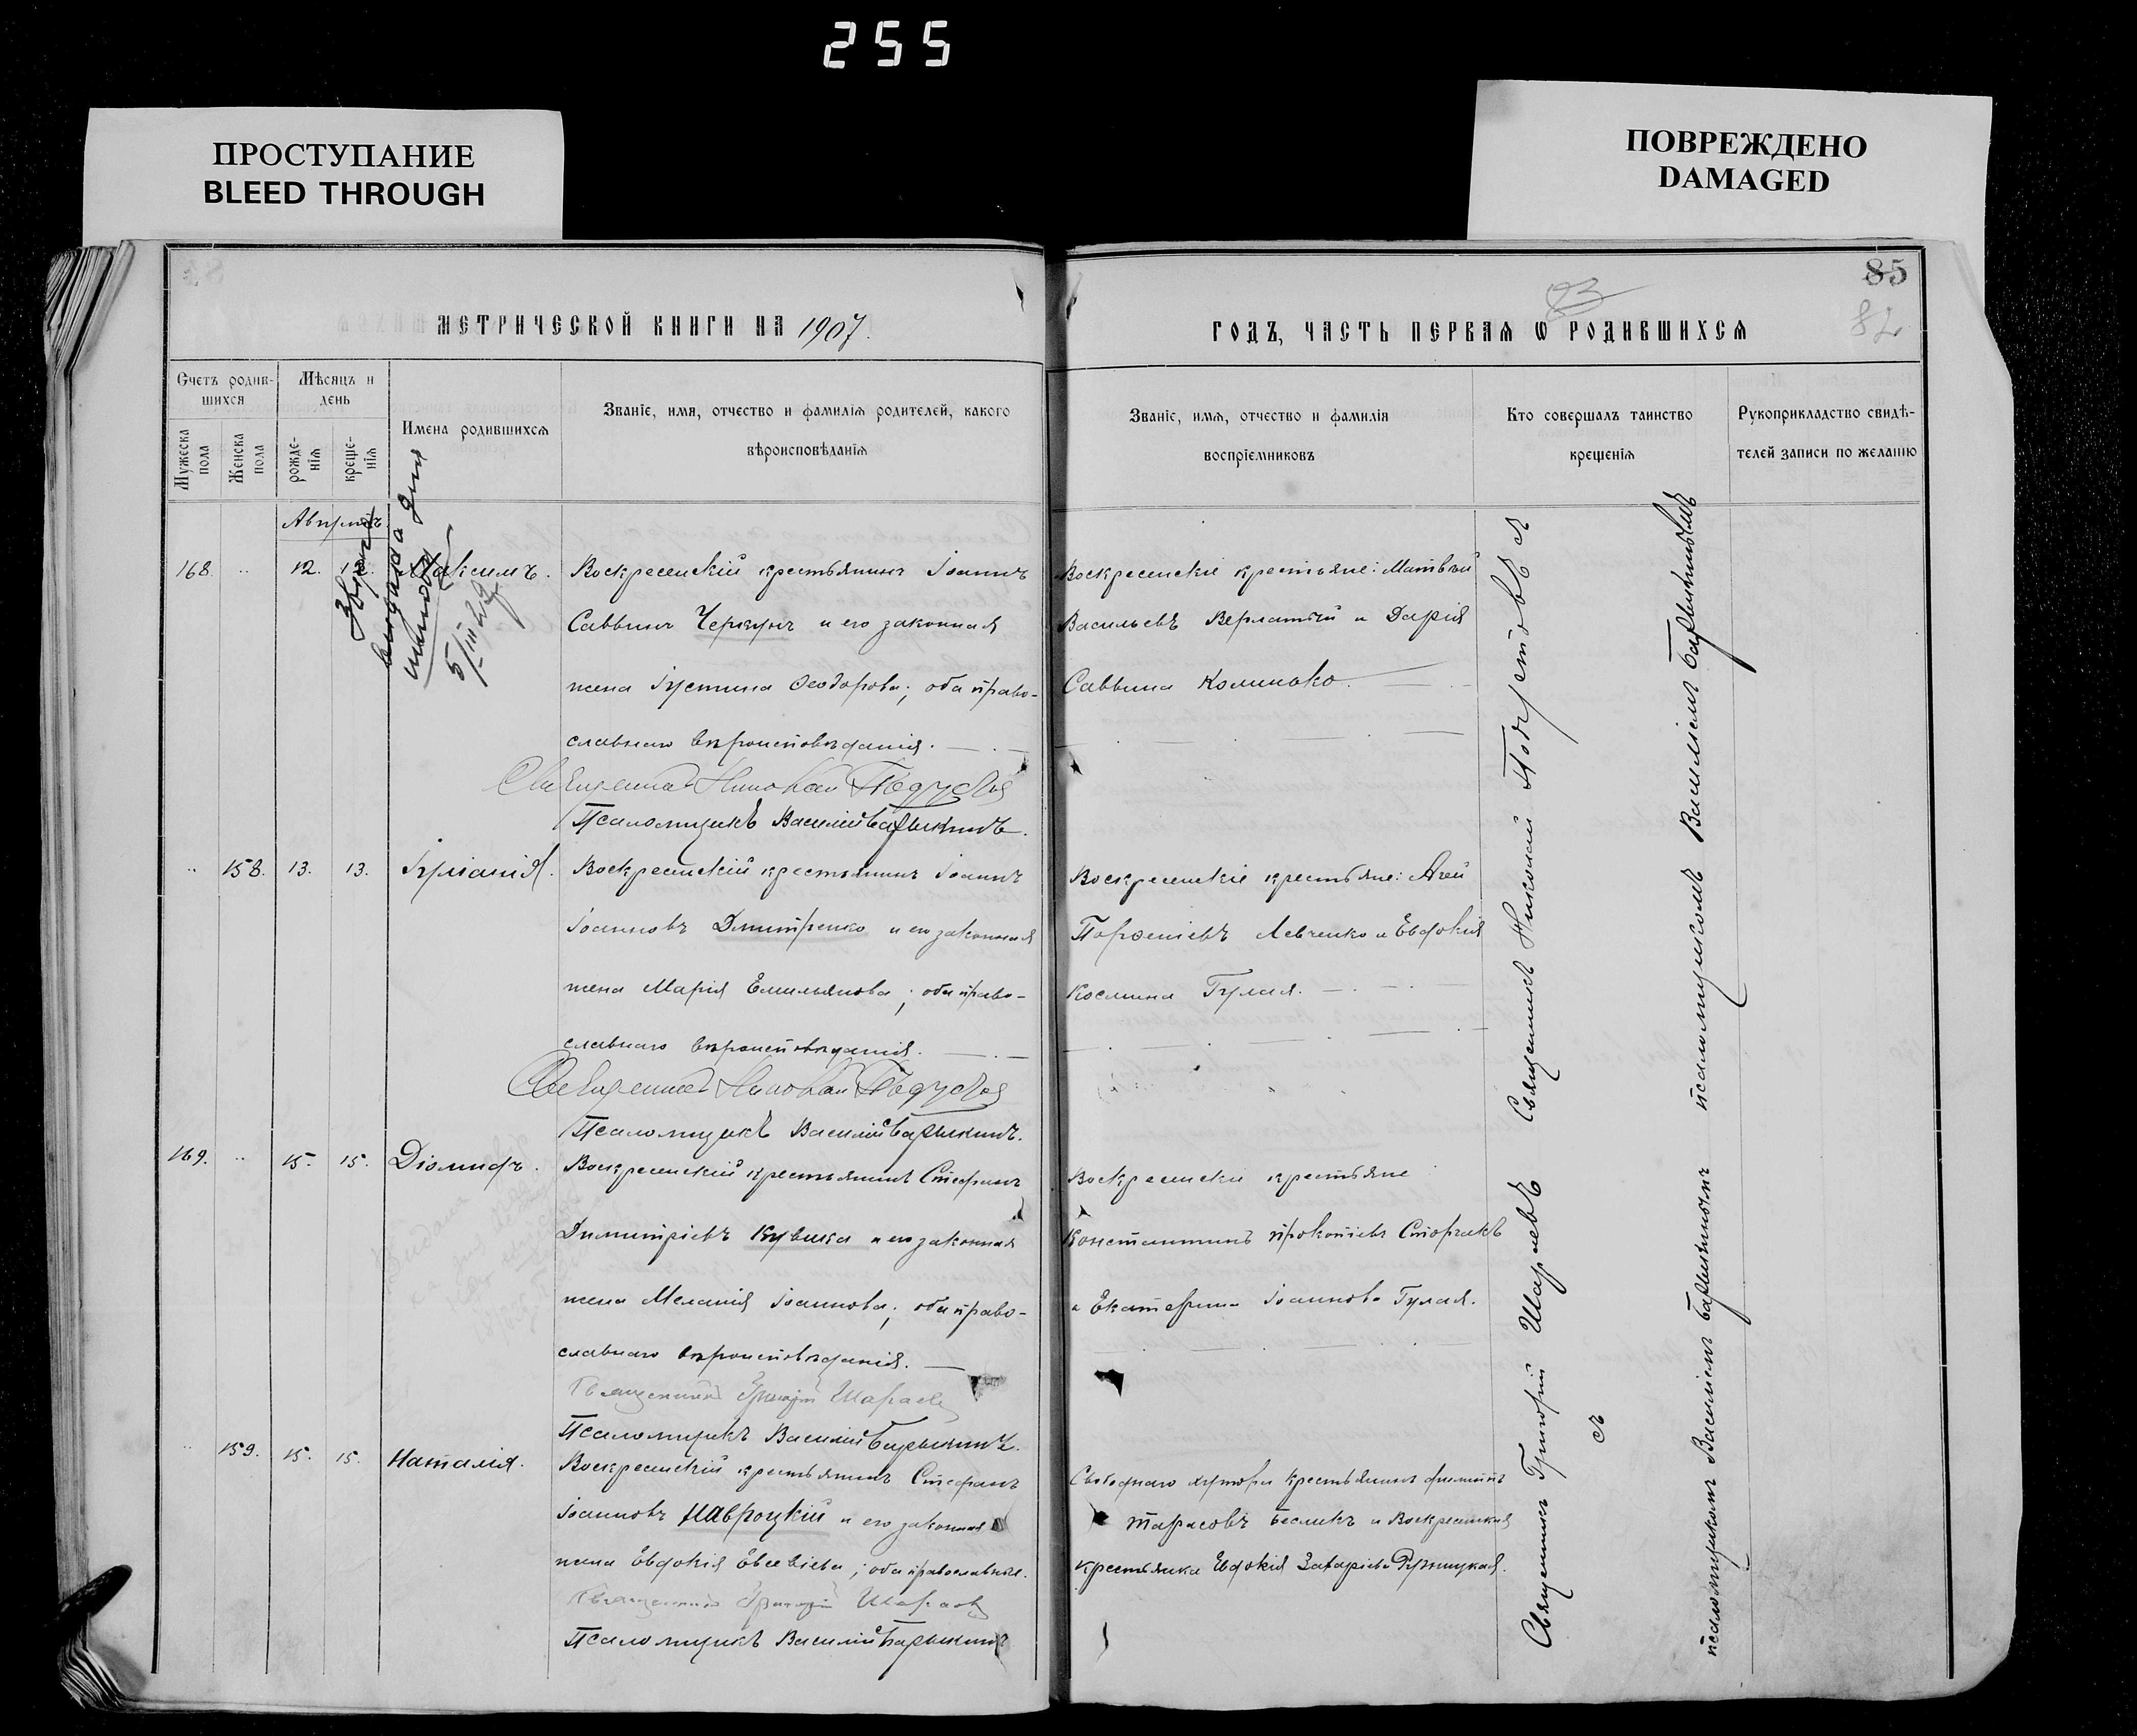 255
ПРОСТУПАНИЕ
BLEED THROUGH
ПОВРЕЖДЕНО
DAMAGED
85
82
МЕТРИЧЕСКОЙ КНИГИ НА 1907.
ГОДЪ, ЧАСТЬ ПЕРВАЯ Ѡ РОДИВШИХСѦ
Счетъ родив-
шихся
Мужеска пола
Женска пола
Мѣсяцъ и
день
рожде-
нія
креще-
нія
Имена родившихсѧ
Званіе, имя, отчество и фамилія родителей, какого
вѣроисповѣданія
Званіе, имѧ, отчество и фамилія
воспріемниковъ
Кто совершалъ таинство
крещеніѧ
Рукоприкладство свидѣ-
телей записи по желанію
Апрѣль
168. 12. 12. Максимъ. Воскресенскій крестьянинъ Іоаннъ
Саввинъ Черкунъ и его законная
жена Іустина Ѳеодорова; оба право-
славнаго вѣроисповѣданія.
Псаломщикъ Василій Барыкинъ.
Воскресенскіе крестьяне: Матвѣй
Васильевъ Верлатый и Дарія
Саввина Колинько.
158. 13. 13. Іуліанія. Воскресенскій крестьянинъ Іоаннъ
Іоанновъ Дмитренко и его законная
жена Марія Емильянова; оба право-
славнаго вѣроисповѣданія.
Псаломщикъ Василій Барыкинъ.
Воскресенскіе крестьяне: Агей
Парѳеніевъ Левченко и Евдокія
Космина Гулая.
169. 15. 15. Діомидъ. Воскресенскій крестьянинъ Стефанъ
Димитріевъ Кувика и его законная
жена Меланія Іоаннова; оба право-
славнаго вѣроисповѣданія.
Священникъ Григорій Шараевъ
Псаломщикъ Василій Барыкинъ.
Воскресенскіе крестьяне
Константинъ Прокопіевъ Сторчакъ
и Екатерина Іоаннова Гулая.
159. 15. 15. Наталія. Воскресенскій крестьянинъ Стефанъ
Іоанновъ Навроцкій и его законная
жена Евдокія Евсевіева; оба православные.
Священникъ Григорій Шараевъ
Псаломщикъ Василій Барыкинъ
Свободнаго хутора крестьянинъ Филиппъ
Тарасовъ Бесликъ и Воскресенская
крестьянка Евдокія Захаріева
Священникъ Николай съ
псаломщикомъ Василіемъ Барыкинымъ
Священникъ Григорій Шараевъ
съ
псаломщикомъ Василіемъ Барыкинымъ